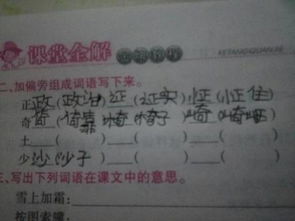 课堂全解
KETANGQUANJIE
二、加偏旁组成词语写下来。
正政(政治)证(证实)怔(怔住)
奇倚(倚靠)椅(椅子)崎(崎岖)
土___(___)___(___)___(___)
少沙(沙子)___(___)___(___)
三、写出下列词语在课文中的意思。
雪上加霜:
按图索骥: